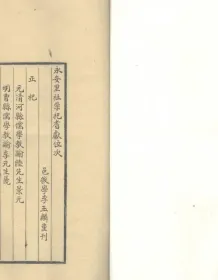 永安里社學祀書獻位次
邑教學李五鎮重刊
正祀
元清河縣儒學教諭德先生景元
明曹縣儒學教諭李先生儀